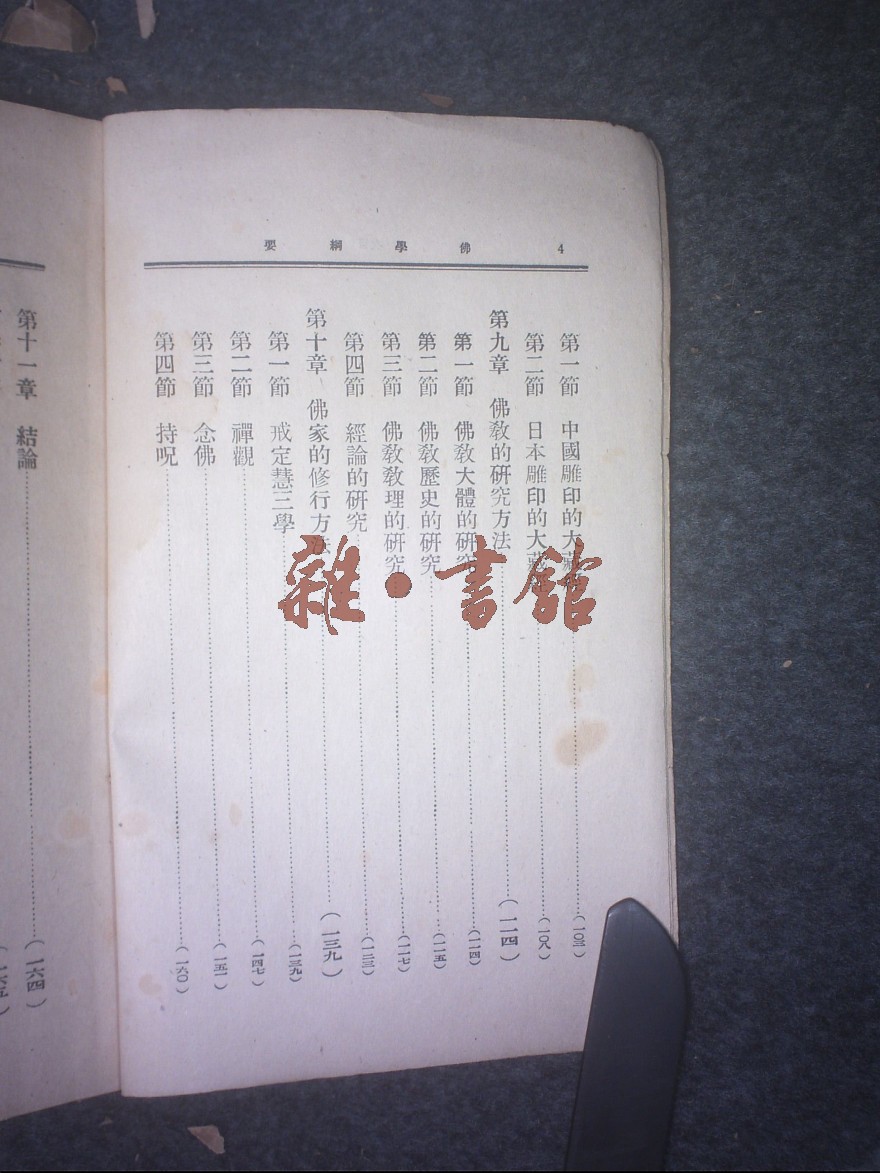 4 佛學綱要
第一節 中國雕印的大藏經……(一〇三)
第二節 日本雕印的大藏經……(一〇八)
第九章 佛教的研究方法……(一一四)
第一節 佛教大體的研究……(一一四)
第二節 佛教歷史的研究……(一一五)
第三節 佛教教理的研究……(一一七)
第四節 經論的研究……(一二三)
第十章 佛家的修行方法……(一三九)
第一節 戒定慧三學……(一三九)
第二節 禪觀……(一四七)
第三節 念佛……(一五一)
第四節 持呪……(一六〇)
第十一章 結論……(一六四)
雜·書館